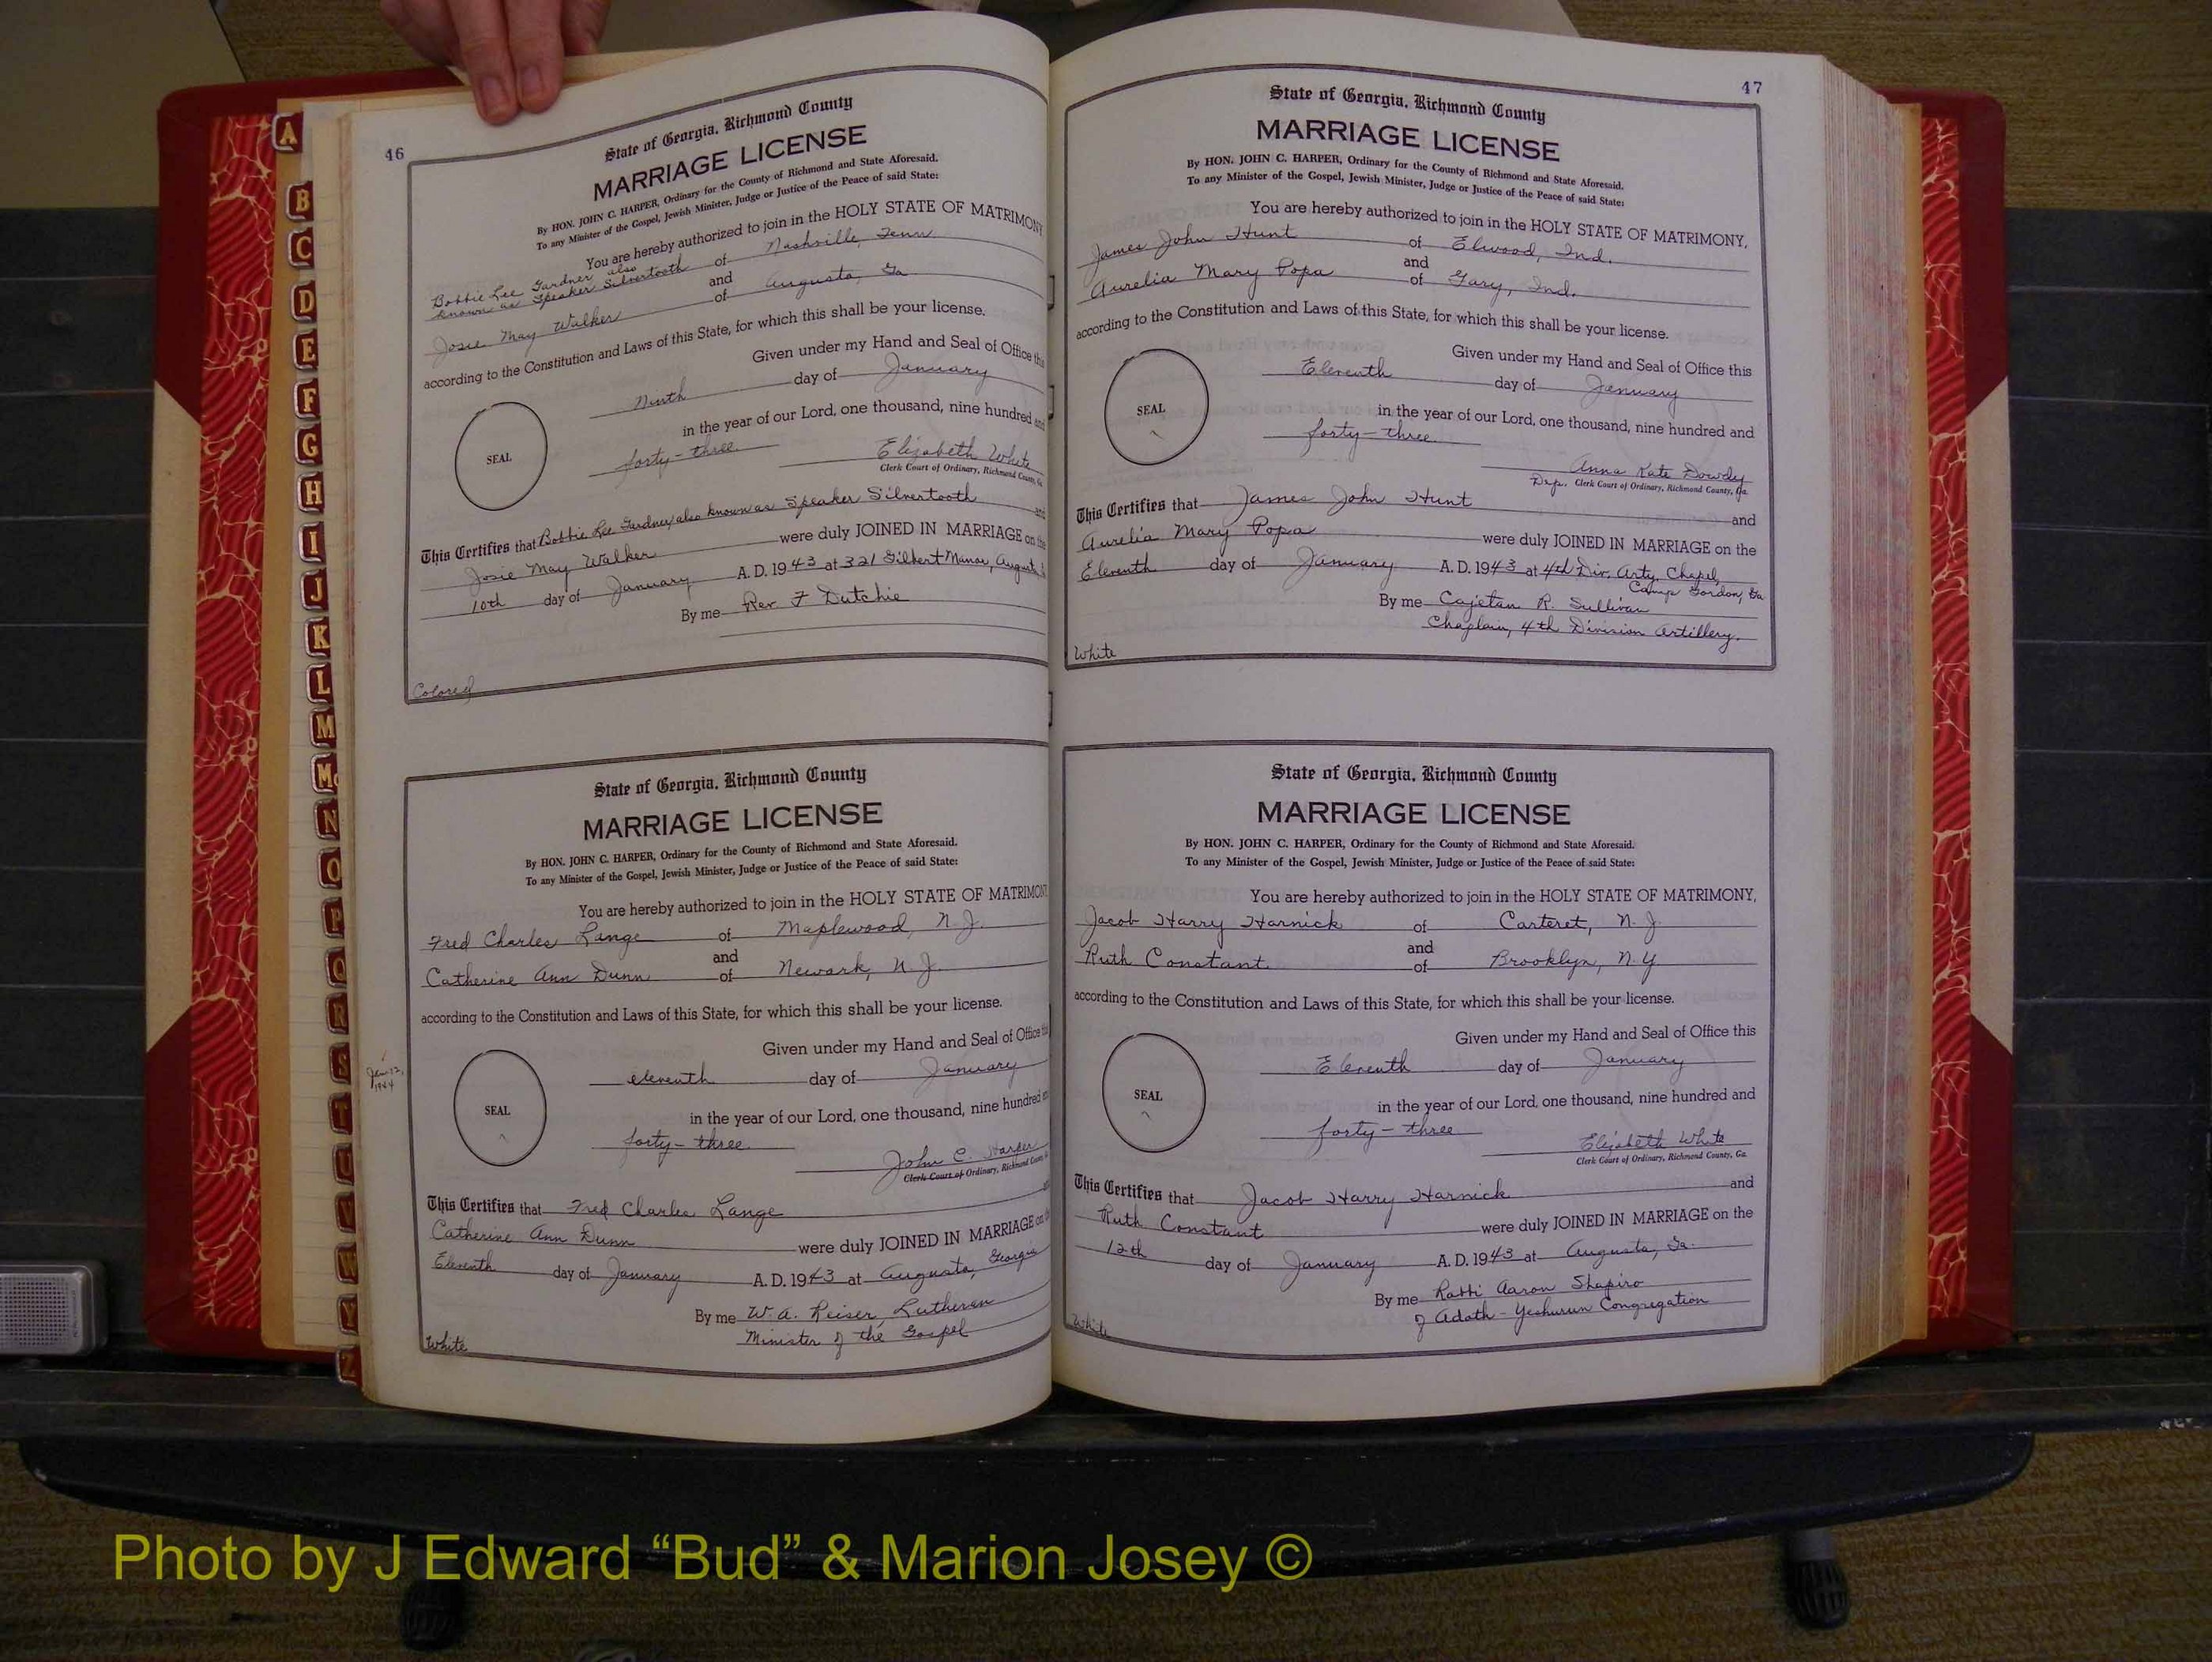 46
State of Georgia, Richmond County
MARRIAGE LICENSE
By HON. JOHN C. HARPER, Ordinary for the County of Richmond and State Aforesaid.
To any Minister of the Gospel, Jewish Minister, Judge or Justice of the Peace of said State:
You are hereby authorized to join in the HOLY STATE OF MATRIMONY
Bobbie Lee Gardner also
known as Speaker Silvertooth of Nashville, Tenn.
and
Josie May Walker of Augusta, Ga
according to the Constitution and Laws of this State, for which this shall be your license.
Given under my Hand and Seal of Office this
Ninth day of January
in the year of our Lord, one thousand, nine hundred and
SEAL
forty-three
Elizabeth White
Clerk Court of Ordinary, Richmond County, Ga.
This Certifies that Bobbie Lee Gardner also known as Speaker Silvertooth and
Josie May Walker were duly JOINED IN MARRIAGE on the
10th day of January A. D. 1943 at 321 Gilbert Manor, Augusta
By me Rev. F Dutchie
Colored
State of Georgia, Richmond County
MARRIAGE LICENSE
By HON. JOHN C. HARPER, Ordinary for the County of Richmond and State Aforesaid.
To any Minister of the Gospel, Jewish Minister, Judge or Justice of the Peace of said State:
You are hereby authorized to join in the HOLY STATE OF MATRIMONY
Fred Charles Lange of Maplewood, N. J.
and
Catherine Ann Dunn of Newark, N. J.
according to the Constitution and Laws of this State, for which this shall be your license.
Given under my Hand and Seal of Office this
eleventh day of January
Jan. 12,
1944
in the year of our Lord, one thousand, nine hundred
SEAL
forty-three
John C. Harper
Clerk Court of Ordinary, Richmond County
This Certifies that Fred Charles Lange
Catherine Ann Dunn were duly JOINED IN MARRIAGE on
Eleventh day of January A. D. 1943 at Augusta, Georgia
By me W. A. Reiser, Lutheran
Minister of the Gospel
White
47
State of Georgia, Richmond County
MARRIAGE LICENSE
By HON. JOHN C. HARPER, Ordinary for the County of Richmond and State Aforesaid.
To any Minister of the Gospel, Jewish Minister, Judge or Justice of the Peace of said State:
You are hereby authorized to join in the HOLY STATE OF MATRIMONY,
James John Hunt of Elwood, Ind.
and
Aurelia Mary Popa of Gary, Ind.
according to the Constitution and Laws of this State, for which this shall be your license.
Given under my Hand and Seal of Office this
Eleventh day of January
SEAL
in the year of our Lord, one thousand, nine hundred and
forty-three
Anna Kate Dowdy
Dep. Clerk Court of Ordinary, Richmond County, Ga.
This Certifies that James John Hunt and
Aurelia Mary Popa were duly JOINED IN MARRIAGE on the
Eleventh day of January A. D. 1943 at 4th Div. Arty. Chapel,
Camp Gordon, Ga
By me Cajetan R. Sullivan
Chaplain, 4th Division Artillery.
White
State of Georgia, Richmond County
MARRIAGE LICENSE
By HON. JOHN C. HARPER, Ordinary for the County of Richmond and State Aforesaid.
To any Minister of the Gospel, Jewish Minister, Judge or Justice of the Peace of said State:
You are hereby authorized to join in the HOLY STATE OF MATRIMONY,
Jacob Harry Harnick of Carteret, N. J.
and
Ruth Constant of Brooklyn, N. Y.
according to the Constitution and Laws of this State, for which this shall be your license.
Given under my Hand and Seal of Office this
Eleventh day of January
SEAL
in the year of our Lord, one thousand, nine hundred and
forty-three
Elizabeth White
Clerk Court of Ordinary, Richmond County, Ga.
This Certifies that Jacob Harry Harnick and
Ruth Constant were duly JOINED IN MARRIAGE on the
12th day of January A. D. 1943 at Augusta, Ga.
By me Rabbi Aaron Shapiro
of Adath-Yeshurun Congregation
White
A
B
C
D
E
F
G
H
I
J
K
L
M
Mc
N
O
P
Q
R
S
T
U
V
W
Y
Z
Photo by J Edward “Bud” & Marion Josey ©